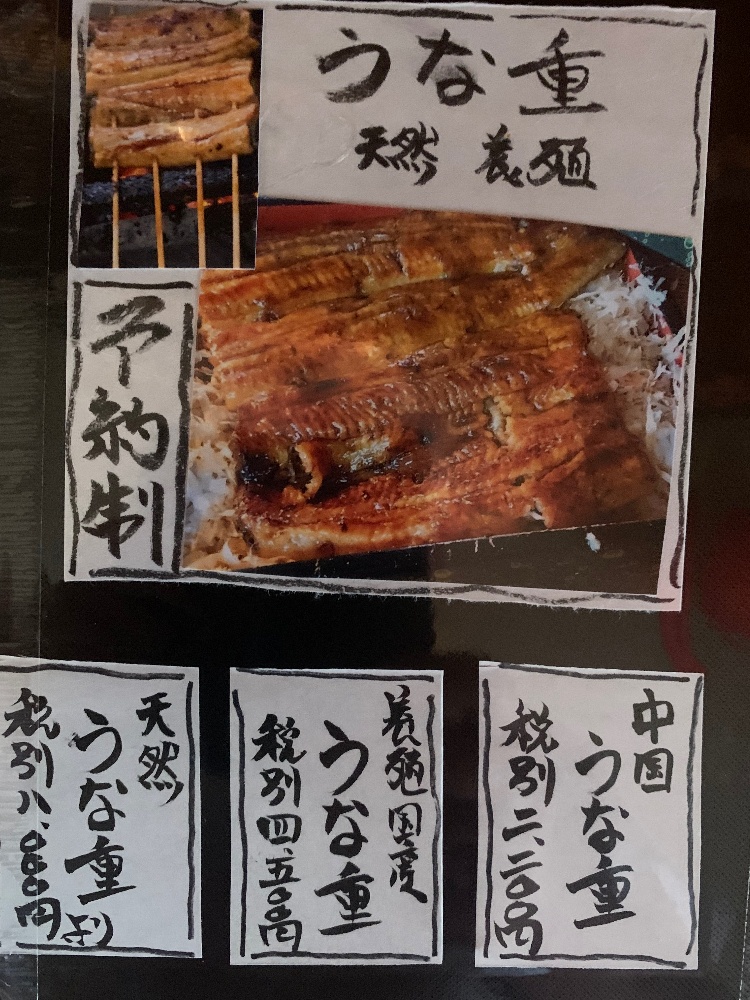 うな重
天然 養殖
予約制
中国
うな重
税別二、二〇〇円
養殖国産
うな重
税別四、五〇〇円
天然
うな重
税別八、〇〇〇円より